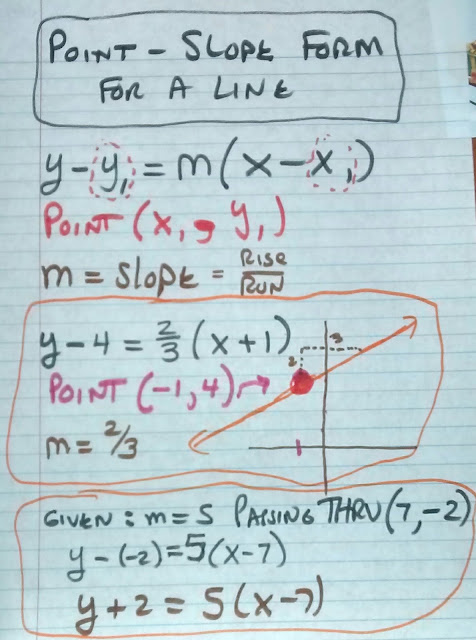 POINT - SLOPE FORM
FOR A LINE
y - y₁ = m(x - x₁)
POINT (x₁, y₁)
m = SlOPE = RISE/RUN
y - 4 = 2/3 (x + 1)
POINT (-1, 4) →
m = 2/3
2
3
GIVEN : m = 5 PASSING THRU (7, -2)
y - (-2) = 5(x - 7)
y + 2 = 5(x - 7)